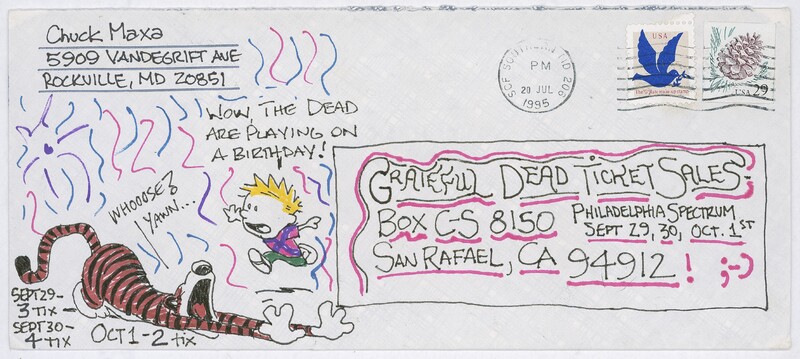 Chuck Maxa
5909 VANDEGRIFT AVE
ROCKVILLE, MD 20851
WOW, THE DEAD
ARE PLAYING ON
A BIRTHDAY!
WHOOOSE?
YAWN...
SEPT 29-
3 TIX
SEPT 30-
4 TIX
OCT 1-2 TIX
SCF SOUTHERN MD 206
PM
20 JUL
1995
USA
USA 29
GRATEFUL DEAD TICKET SALES-
BOX C-S 8150
SAN RAFAEL, CA 94912! ;-)
PHILADELPHIA SPECTRUM
SEPT 29, 30, OCT. 1ST